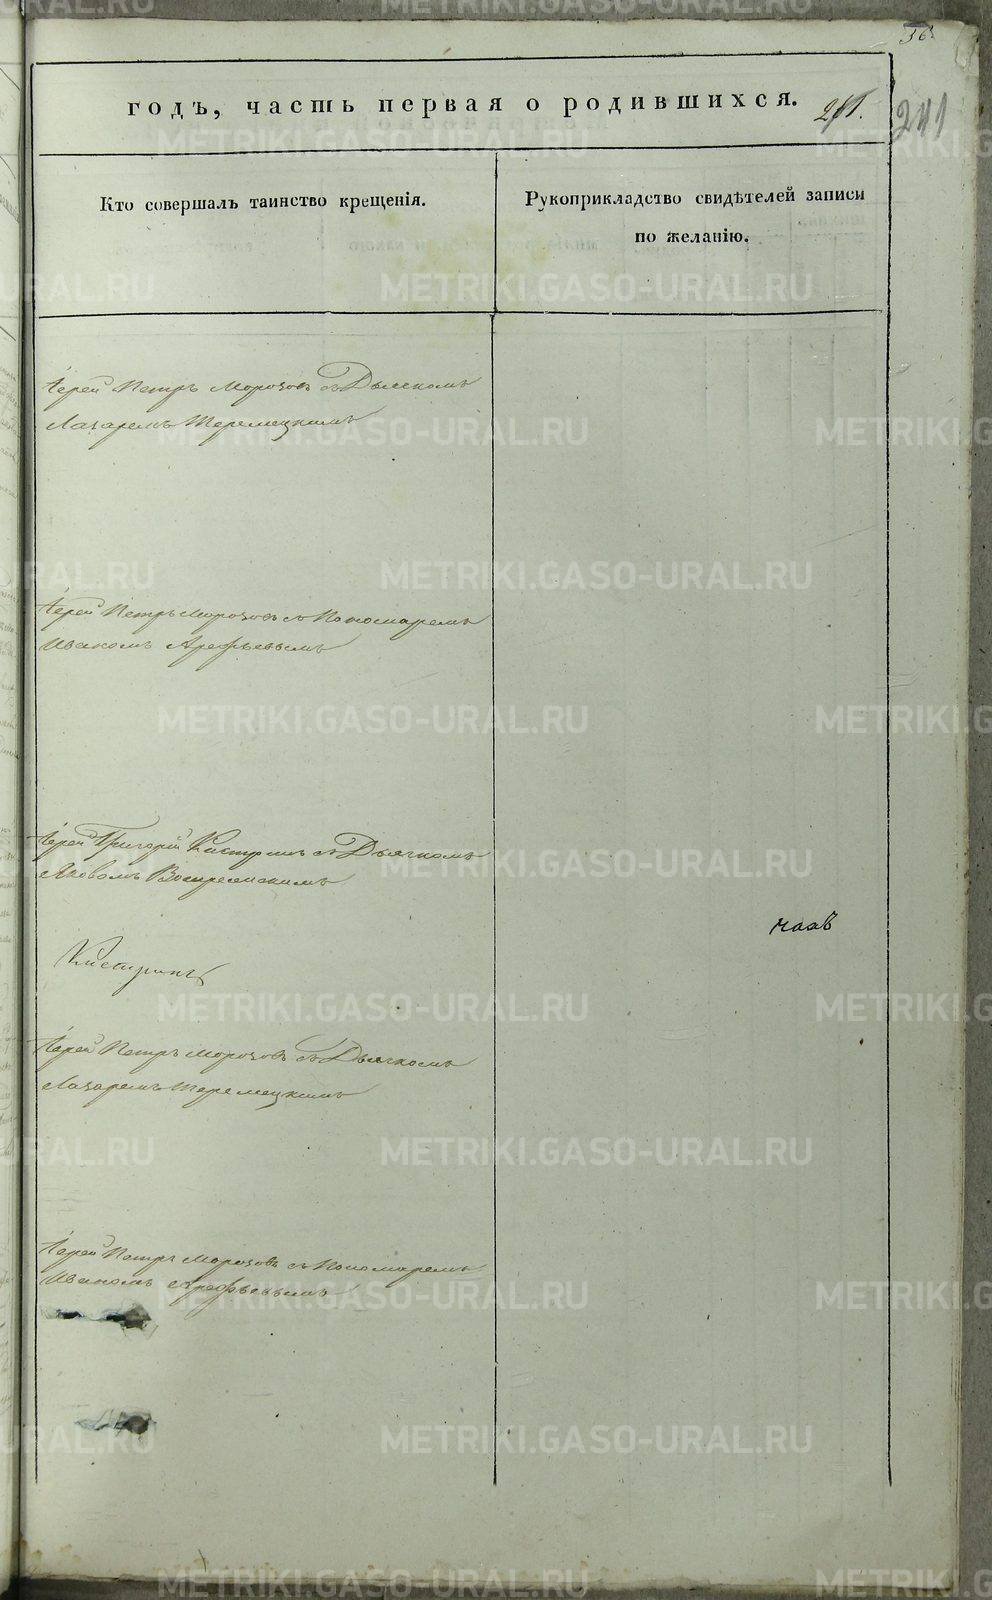 36
годъ, часть первая о родившихся.
241.
241
Кто совершалъ таинство крещенія.
Рукоприкладство свидѣтелей записи
по желанію.
Іерей Петръ Морозовъ съ Дьячкомъ
Лазаремъ Теремецкимъ
Іерей Петръ Морозовъ съ Пономаремъ
Иваномъ Арефьевымъ
Іерей Григорій съ Дьячкомъ
Яковомъ
Іерей Петръ Морозовъ съ Дьячкомъ
Лазаремъ Теремецкимъ
Іерей Петръ Морозовъ съ Пономаремъ
Иваномъ Арефьевымъ
METRIKI.GASO-URAL.RU